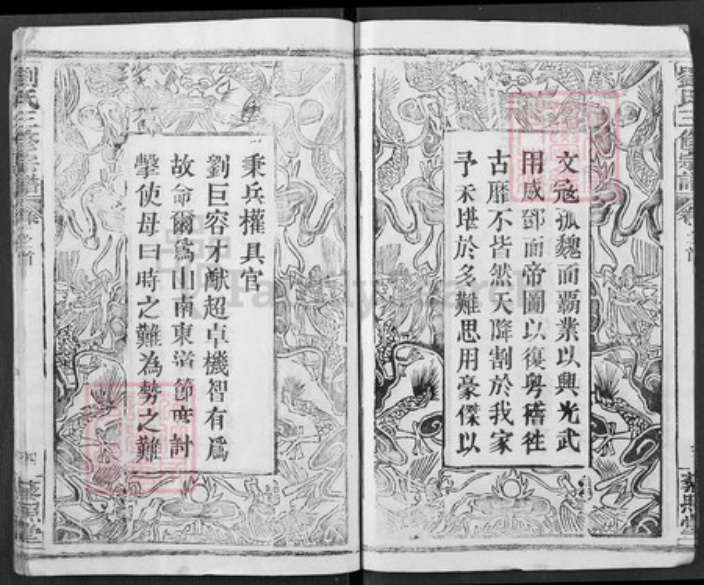 文冦孤魏而覇業以興光武
用威鄧而帝圖以復粤稽徃
古靡不皆然天降割於我家
予未堪於多難思用豪傑以
秉兵權具官
劉巨容才猷超卓機智有爲
故命爾爲山南東道節度討
擊使毋曰時之難為勢之難
劉氏三修宗譜
卷之首